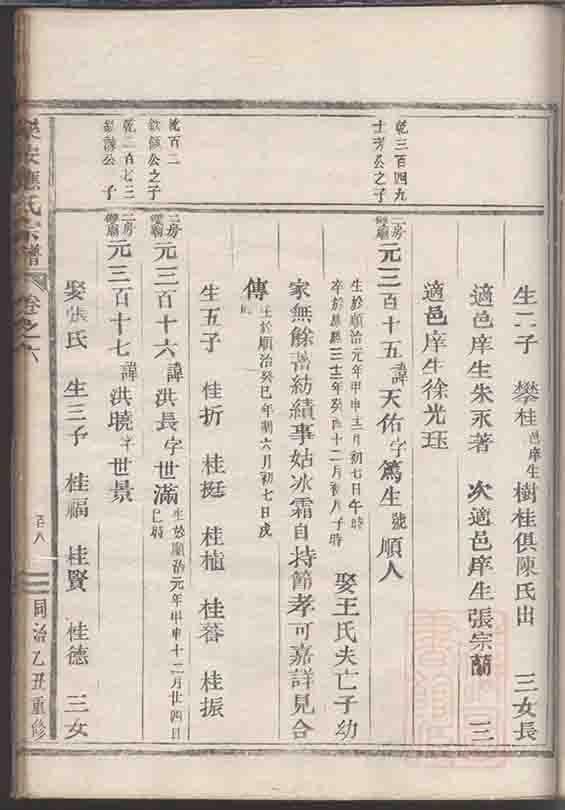 生二子 攀桂邑庠生樹桂俱陳氏出 三女長
適邑庠生朱永著 次適邑庠生張宗蘭 三
適邑庠生徐光珏
乾三百四九
士芳公之子
二房
元三百十五諱天佑字篤生號順人
生於順治元年甲申十二月初七日午時
卒於康熙三十二年癸酉十二月初八子時
娶王氏夫亡子幼
家無餘蓄紡績事姑冰霜自持節孝可嘉詳見合
傳生於順治癸巳年閏六月初七日戌時
生五子 桂折 桂挺 桂植 桂馨 桂振
乾百二
公之子
二房
元三百十六諱洪長字世滿生於順治元年甲申十二月廿四日巳時
乾二百七三
公子
二房
元三百十七諱洪曉字世景
娶張氏 生三子 桂福 桂賢 桂德 三女
樂安應氏宗譜 卷之六
百八
同治乙丑重修